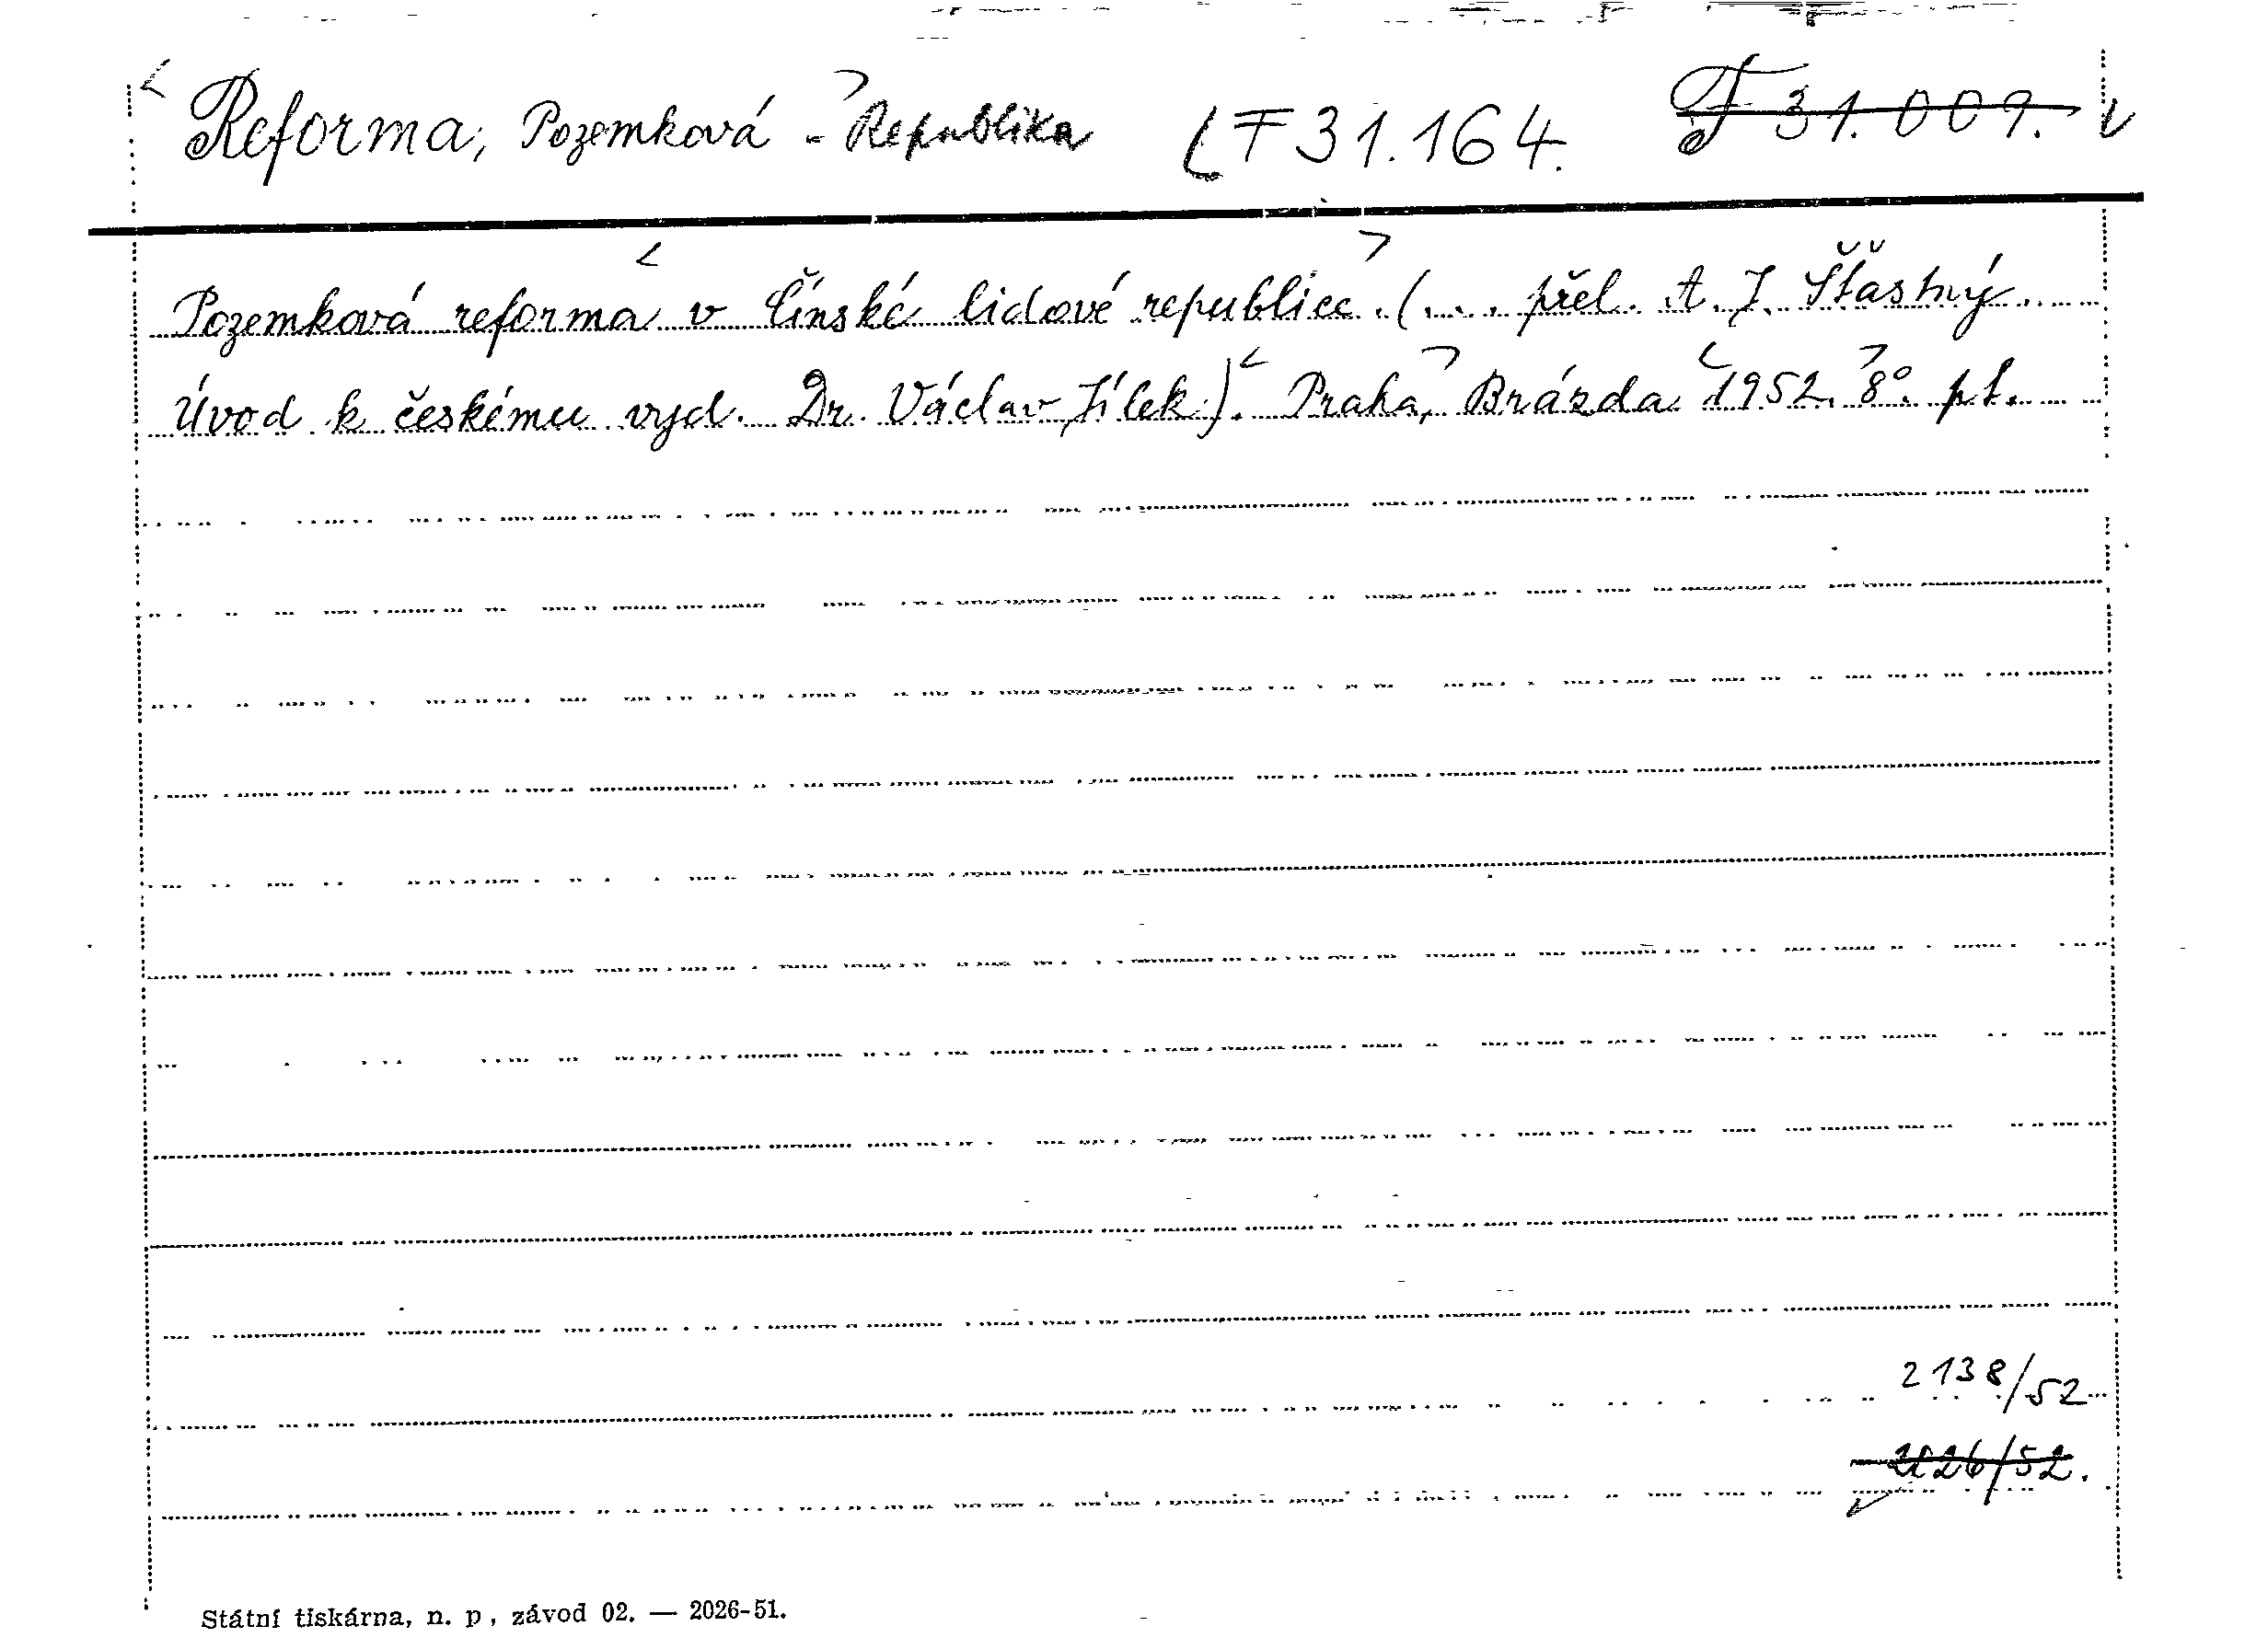 Reforma, Pozemková - Republika F 31.164. F 31.009.
Pozemková reforma v Čínské lidové republice. (... přel. A. J. Šťastný ...
Úvod k českému vyd. Dr. Václav Jílek). Praha, Brázda 1952. 8°. pt.
2138/52
2126/52.
Státní tiskárna, n. p., závod 02. — 2026-51.